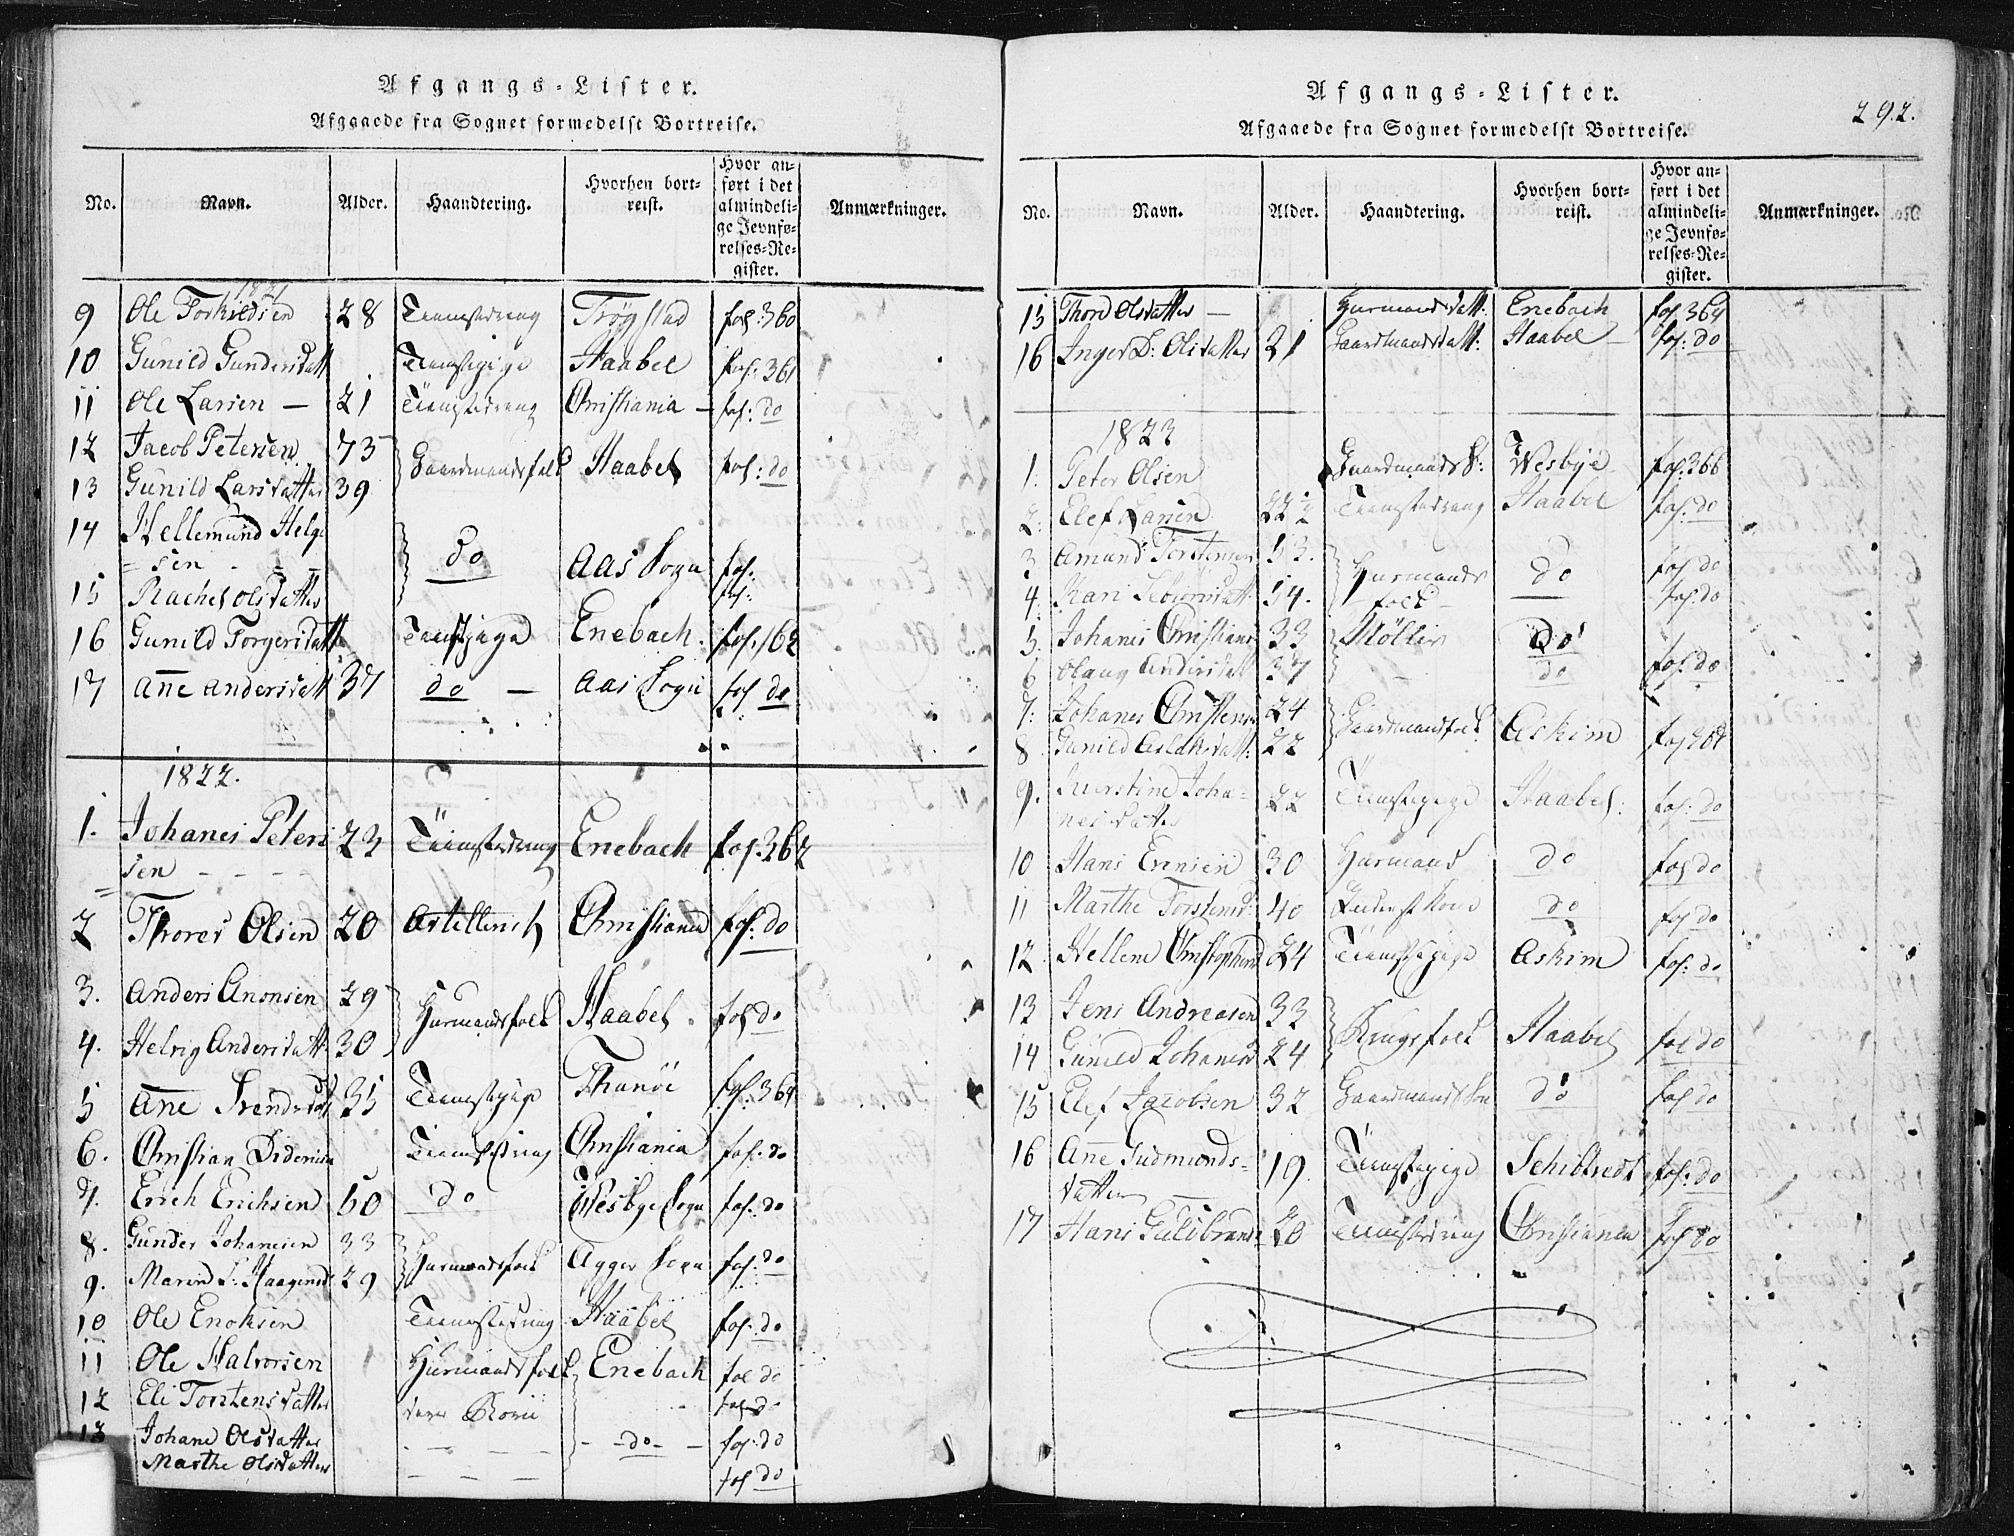 Afgangs-Lister.
Afgaaede fra Sognet formedelst Bortreise.
No. Navn. Alder. Haandtering. Hvorhen bortreist. Hvor anført i det almindelige Jevnførelses-Register. Anmærkninger.
1821
9 Ole Torkildsen 28 Tienestedreng Trøgstad fol: 360
10 Gunild Gundersdatt Tienestepige Haabel fol: 361
11 Ole Larsen — 21 Tienestedreng Christiania — fol: do
12 Jacob Petersen 73 Gaardmandsfolk Haabel fol: do
13 Gunild Larsdatter 39
14 Hellemund Helge
= sen do Aas Sogn fol:
15 Rachel Olsdatter fol:
16 Gunild Torgersdatt Tienstpige Enebach. fol. 162
17 Ane Andersdatt 37 do — Aas Sogn fol do
1822.
1. Johanes Peter
sen 23 Tienestedreng Enebach fol. 362
2 Thores Olsen 20 Christiania fol: do
3. Anders Anonsen 29 Husmandsfolk Haabel fol do
4. Helvig Andersdatt 30
5 Ane 35 Tienestepige fol. 364
6. Christian Tienestedreng Christiania fol. do
7. Errich Erichsen 50 do Wesbye Sogn fol. do
8. Gunder Johanesen 33 Husmandsfolk Agger Sogn fol. do
9. Maren 29
10 Ole Enoksen Tienestedreng Haabel fol. do
11 Ole Halvorsen Husmandsfolk Enebach fol do
12 Eli Torstensdatter fol do
13 Johane Olsdatter - do - fol: do
Marthe Olsdatter fol do
Afgangs-Lister.
292.
Afgaaede fra Sognet formedelst Bortreise.
No. Navn. Alder. Haandtering. Hvorhen bortreist. Hvor anført i det almindelige Jevnførelses-Register. Anmærkninger.
15 Thore Olsdatter — Husmandsdatt: Enebach fol 364
16 Inger L: Olsdatter 21 Gaardmandsdatt: Haabel fol: do
1823
1. Peter Olsen Gaardmands S: Wesbye fol. 366
2. Elef Larsen 22 ½ Tienestedreng Haabel fol. do
3 Amund Torstensen 53. Husmands do fol do
4. Kari 54. folk fol. do
5. Johanes Christians 33 Møller do
6 Olaug Andersdatt 37 do fol. do
7. Johanes Christensen 24 Gaardmandsfolk Askim
8. Gunild Aslaksdatt: 22
9. Kierstine Joha=
nesdatter 22 Tienestepige Haabel: fol. do
10 Hans Evensen 30 Husmand do fol do
11 Marthe Torstens 40 do fol do
12. Hellene Christophers 24 Tienestepige Askim fol. do
13 Jens Andreasen 33 Haabel fol do
14 Gunild Johanes 24
15 Elef Jacobsen 32 Gaardmands Søn do fol do
16 Ane Gudmunds=
datter 19. Tienestepige fol: do
17 Hans Guldbrands 20 Tienestedreng Christiania fol do